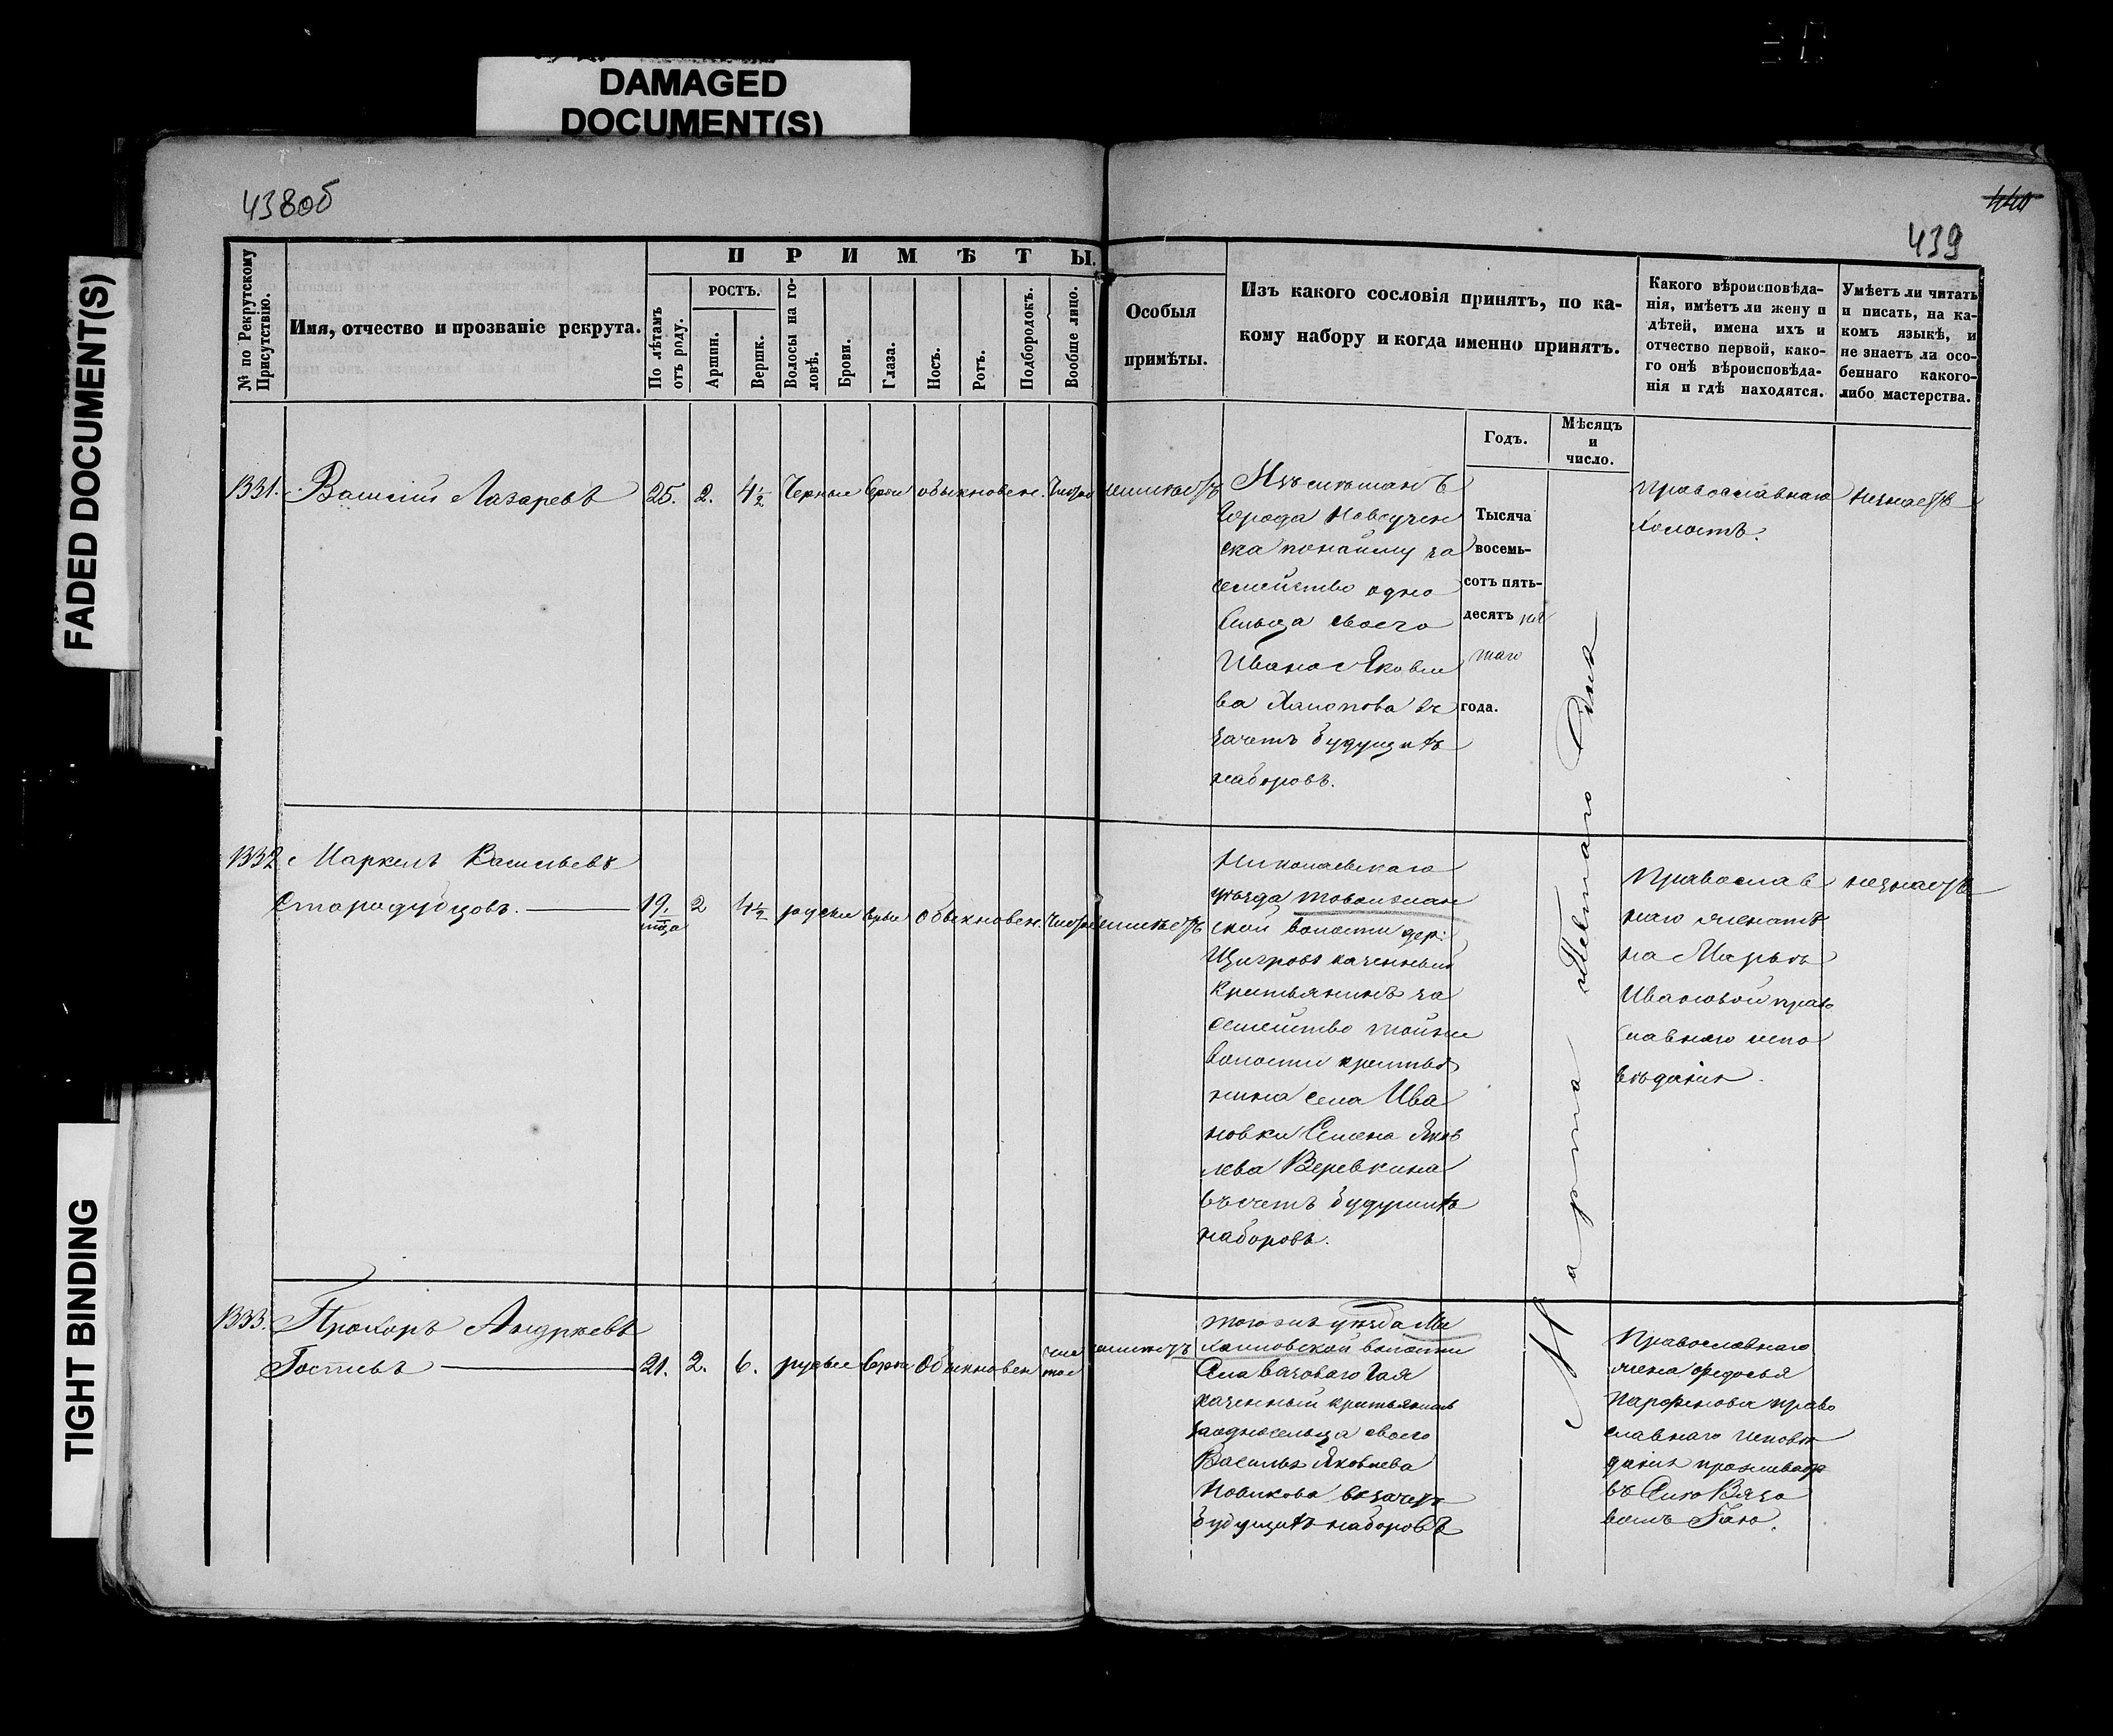 DAMAGED
DOCUMENT(S)
FADED DOCUMENT(S)
TIGHT BINDING
438об
440
439
№ по Рекрутскому
Присутствію.
Имя, отчество и прозваніе рекрута.
ПРИМѢТЫ.
По лѣтамъ
отъ роду.
РОСТЪ.
Аршин.
Вершк.
Волосы на го-
ловѣ.
Брови.
Глаза.
Носъ.
Ротъ.
Подбородокъ.
Вообще лицо.
Особыя
примѣты.
Изъ какого сословія принятъ, по ка-
кому набору и когда именно принятъ.
Какого вѣроисповѣда-
нія, имѣетъ ли жену и
дѣтей, имена ихъ и
отчество первой, како-
го онѣ вѣроисповѣда-
нія и гдѣ находятся.
Умѣетъ ли читать
и писать, на ка-
комъ языкѣ, и
не знаетъ ли осо-
беннаго какого-
либо мастерства.
Годъ.
Мѣсяцъ
и
число.
1331. Василій Лазаревъ 25. 2. 4½ Черные сѣрые обыкновен. Чистое неимѣетъ
Изъ мѣшанъ
города Новоузен
ска понайму за
семейство одно
сельца своего
Ивана Яковле
ва Хапопова въ
зачетъ будущихъ
наборовъ.
Тысяча
восемь-
сотъ пять-
десятъ пя
таго
года.
Марта Девятаго Дня
Православнаго
Холостъ.
Незнаетъ
1332. Маркелъ Васильевъ
Стародубцовъ. 19. 2 4½ русые сѣрые Обыкновен. Чистое неимѣетъ
Николаевскаго
уѣзда
ской волости дер:
Щигровъ казенный
Крестьянинъ за
семейство тойже
волости крестья
нина села Ива
новки Семена Яков
лева Веревкина
въ счетъ будущихъ
наборовъ.
Православ
наго женатъ
на Марьѣ
Ивановой право
славнаго испо
вѣданія.
незнаетъ
1333. Прохоръ Андреевъ
Гостевъ 21. 2. 6. русые сѣрые Обыкновен чис
тое неимѣетъ
тогожъ уѣзда
волости
Села Вязоваго Гая
казенный крестьянинъ
заодносельца своего
Василья Яковлева
Новикова въ зачетъ
будущихъ наборовъ
Православнаго
жена Федосья
Парфенова право
славнаго исповѣ
данія проживаетъ
въ Селѣ Вязо
вомъ Гаю.